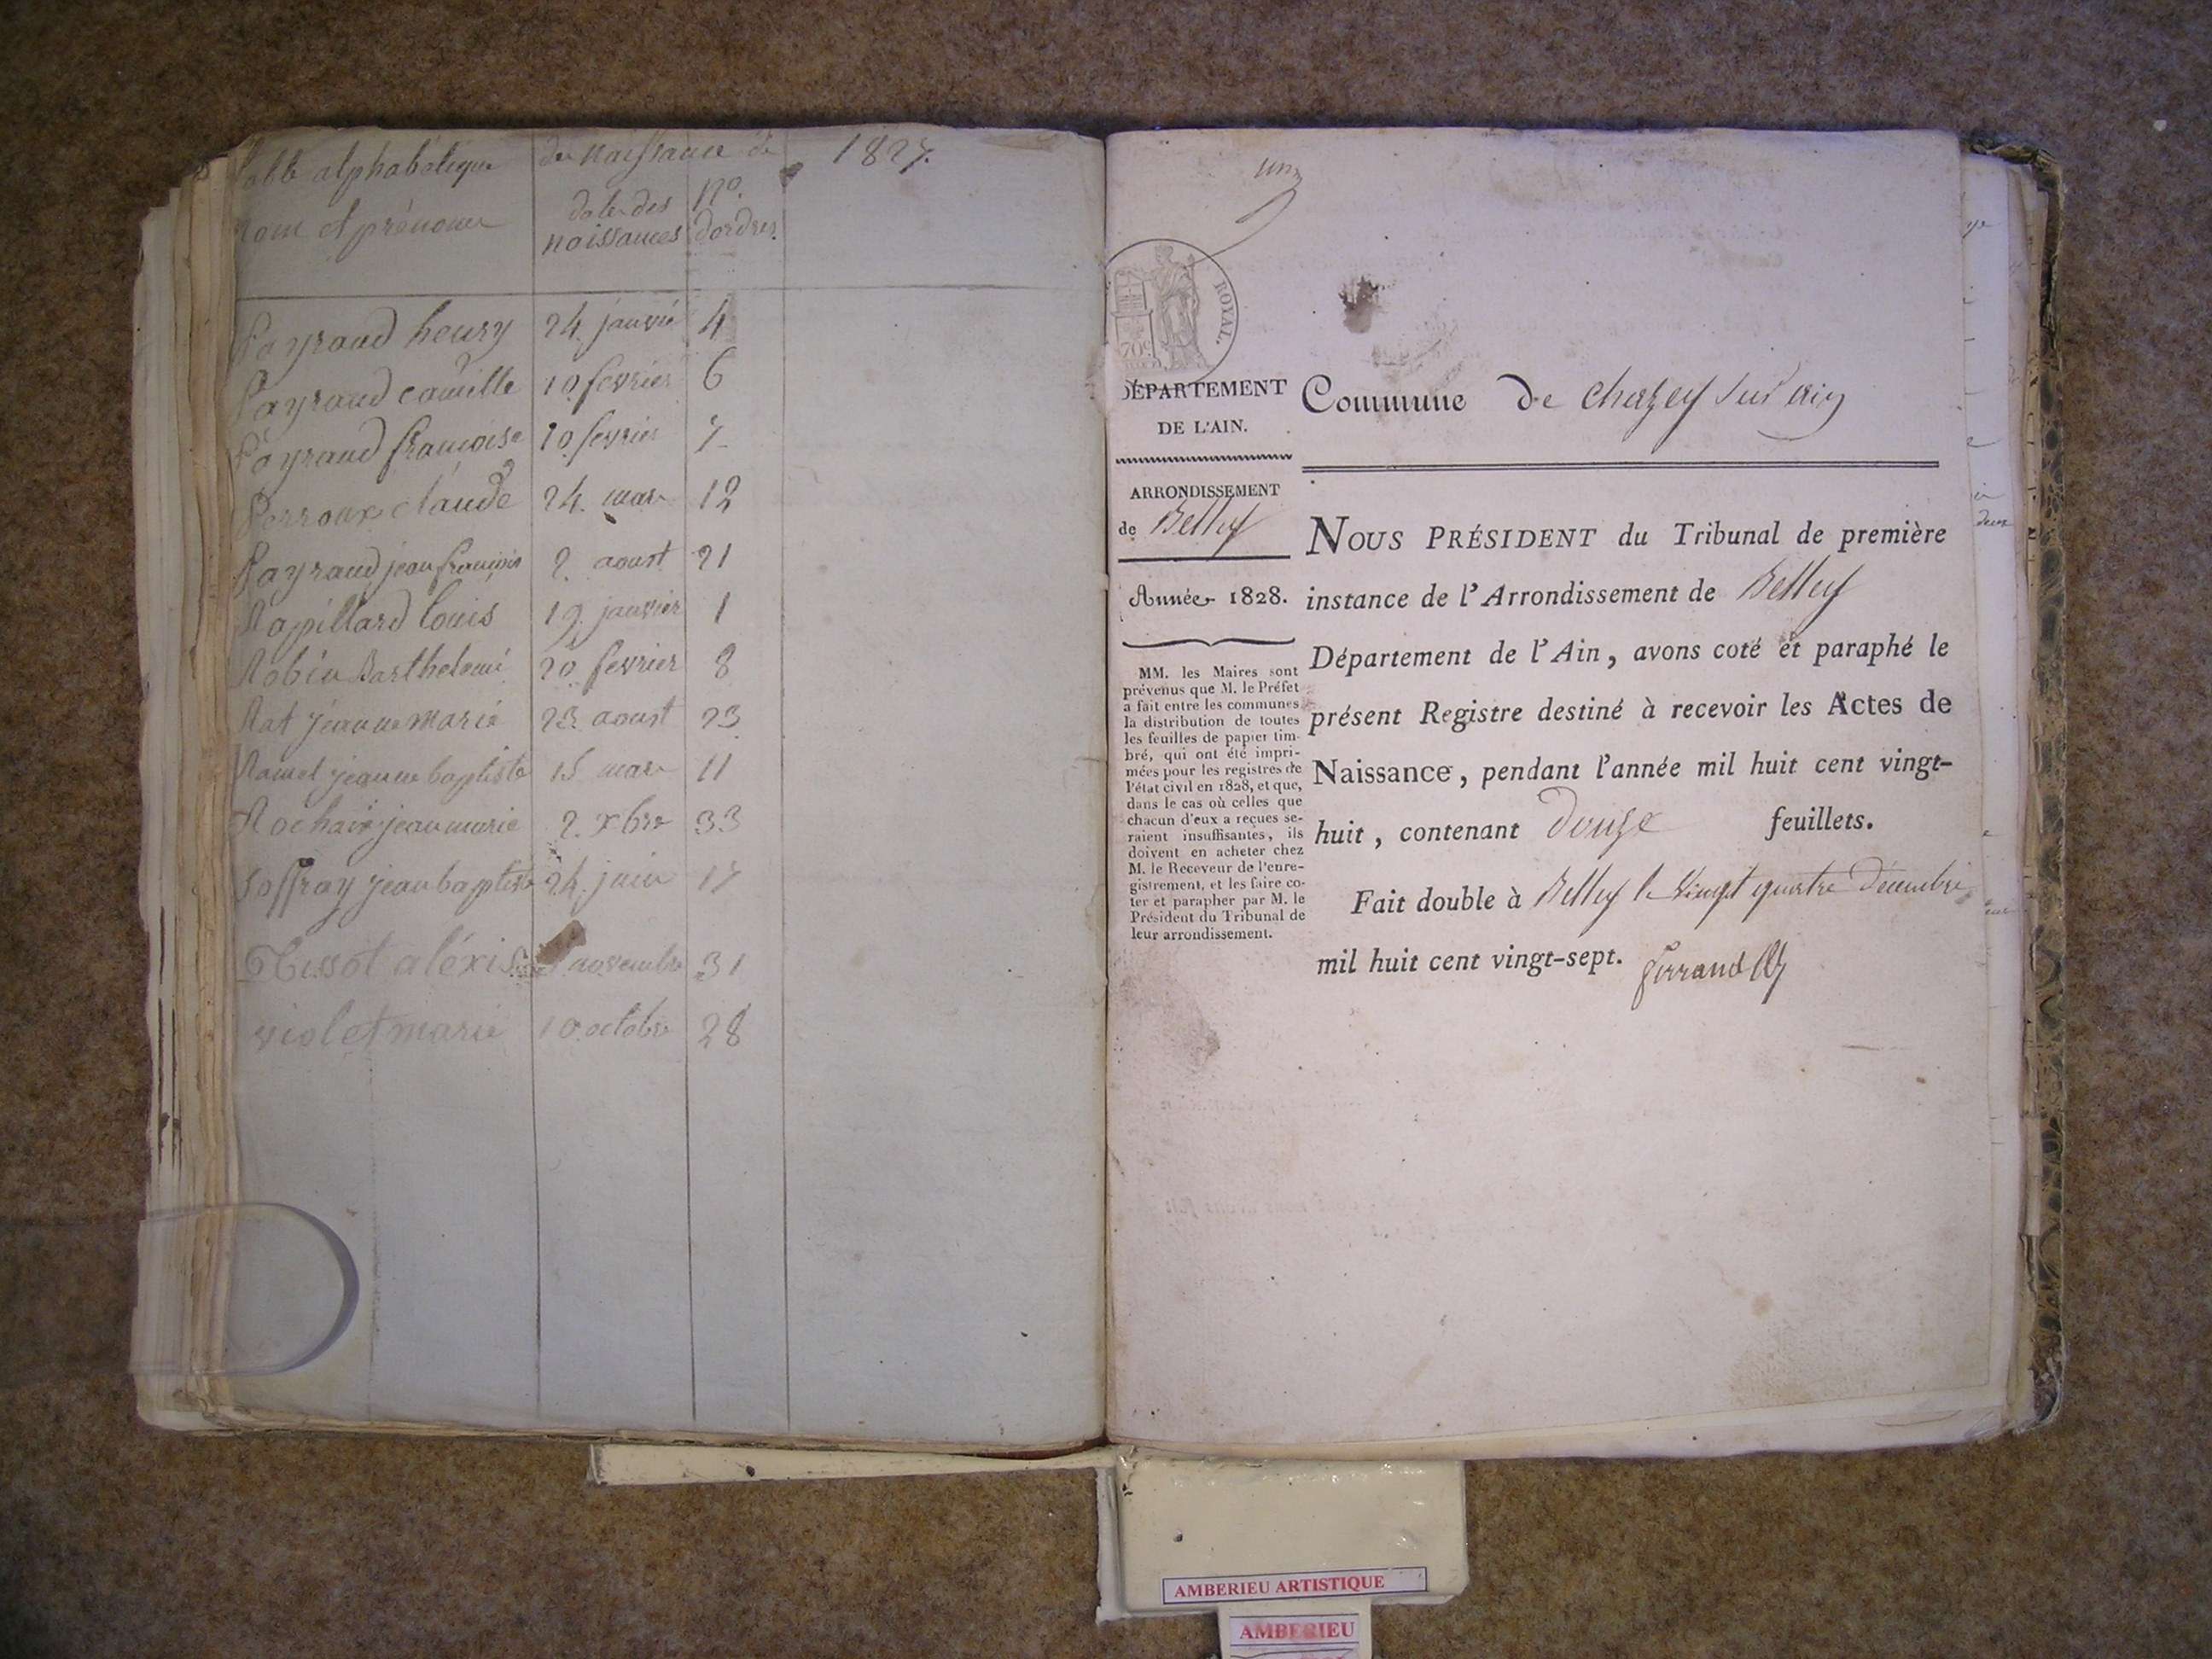 table alphabétique des naissance de 1827.
nom et prénoms
date des naissances
no. dordres.
Payraud henry 24. janvié 4
Payraud camille 10. fevrier 6
Payraud françoise 10. fevrier 7
Perroux claude 24. mars 12
Payraud jean françois 2. aoust 21
Rapillard louis 19. janvier 1
Robin Barthelemi 20. fevrier 8
Rat jeanne marie 23. aoust 23
Ramel jeanne baptiste 15 mars 11
Rochaix jean marie 2. xbre 33
Soffray jean baptiste 24. juin 17
Tissot aléxis novembre 31
violet marie 10. octobre 28
un
ROYAL.
70c
DÉPARTEMENT
DE L'AIN.
ARRONDISSEMENT
de Belley
Année 1828.
MM. les Maires sont
prévenus que M. le Préfet
a fait entre les communes
la distribution de toutes
les feuilles de papier tim-
bré, qui ont été impri-
mées pour les registres de
l'état civil en 1828, et que,
dans le cas où celles que
chacun d'eux a reçues se-
raient insuffisantes, ils
doivent en acheter chez
M. le Receveur de l'enre-
gistrement, et les faire co-
ter et parapher par M. le
Président du Tribunal de
leur arrondissement.
Commune de chazey sur ain
NOUS PRÉSIDENT du Tribunal de première
instance de l'Arrondissement de Belley
Département de l'Ain, avons coté et paraphé le
présent Registre destiné à recevoir les Actes de
Naissance, pendant l'année mil huit cent vingt-
huit, contenant douze feuillets.
Fait double à Belley le vingt quatre décembre
mil huit cent vingt-sept.
AMBERIEU ARTISTIQUE
AMBERIEU